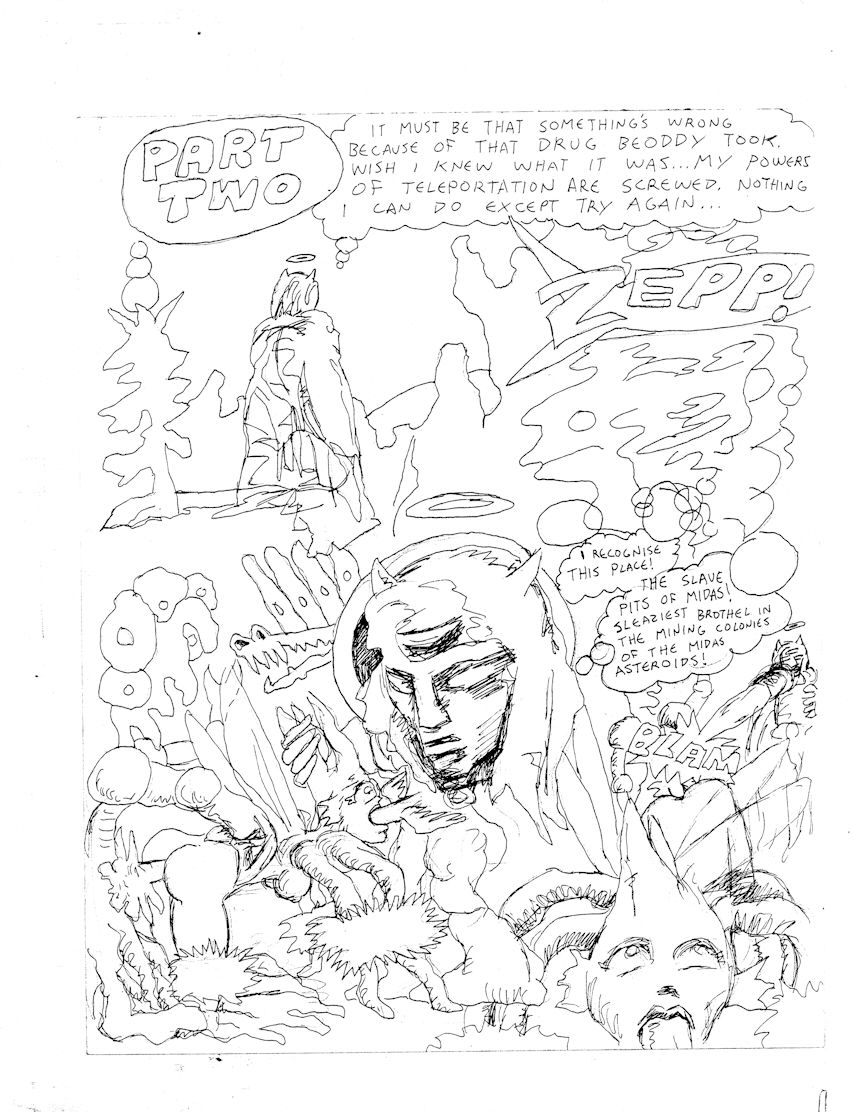 PART
TWO
IT MUST BE THAT SOMETHING'S WRONG
BECAUSE OF THAT DRUG BEODDY TOOK.
WISH I KNEW WHAT IT WAS... MY POWERS
OF TELEPORTATION ARE SCREWED. NOTHING
I CAN DO EXCEPT TRY AGAIN...
ZEPP!
I RECOGNISE
THIS PLACE!
THE SLAVE
PITS OF MIDAS!
SLEAZIEST BROTHEL IN
THE MINING COLONIES
OF THE MIDAS
ASTEROIDS!
BLAM